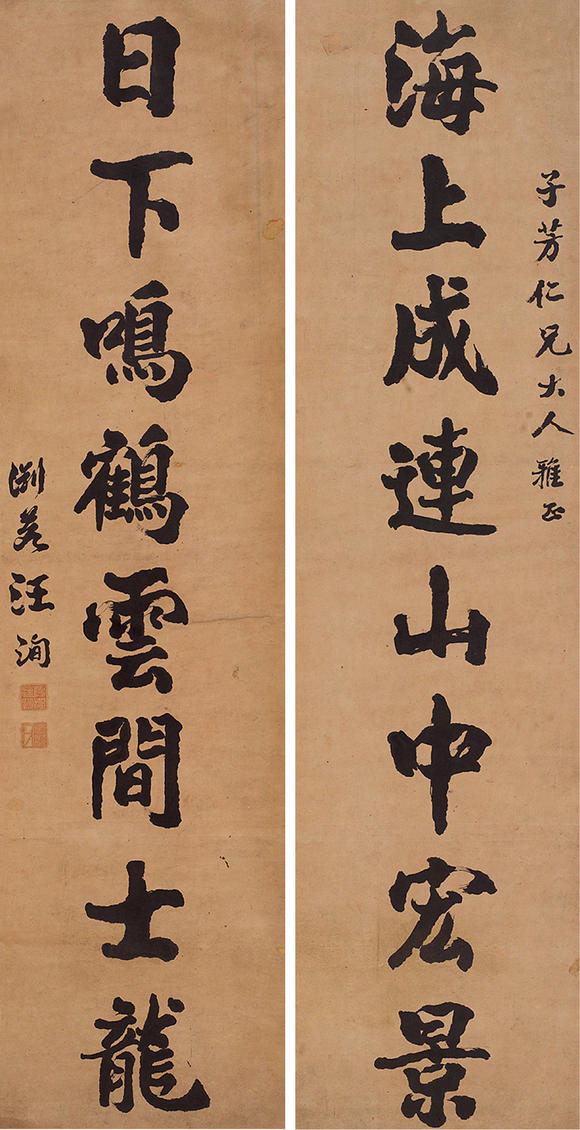 子芳仁兄大人雅正
海上成連山中宏景
日下鳴鶴雲間士龍
淵若汪洵